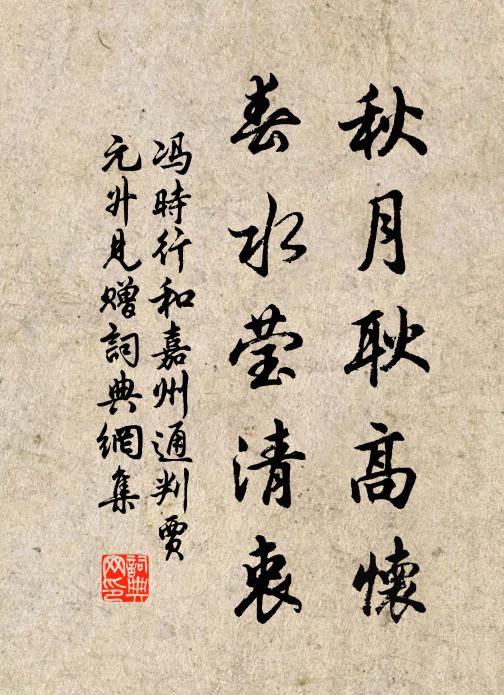 秋月耿高懷
春水莹清衷
冯時行和嘉州通判賈
元外見赠詞典網集
詞典
网印